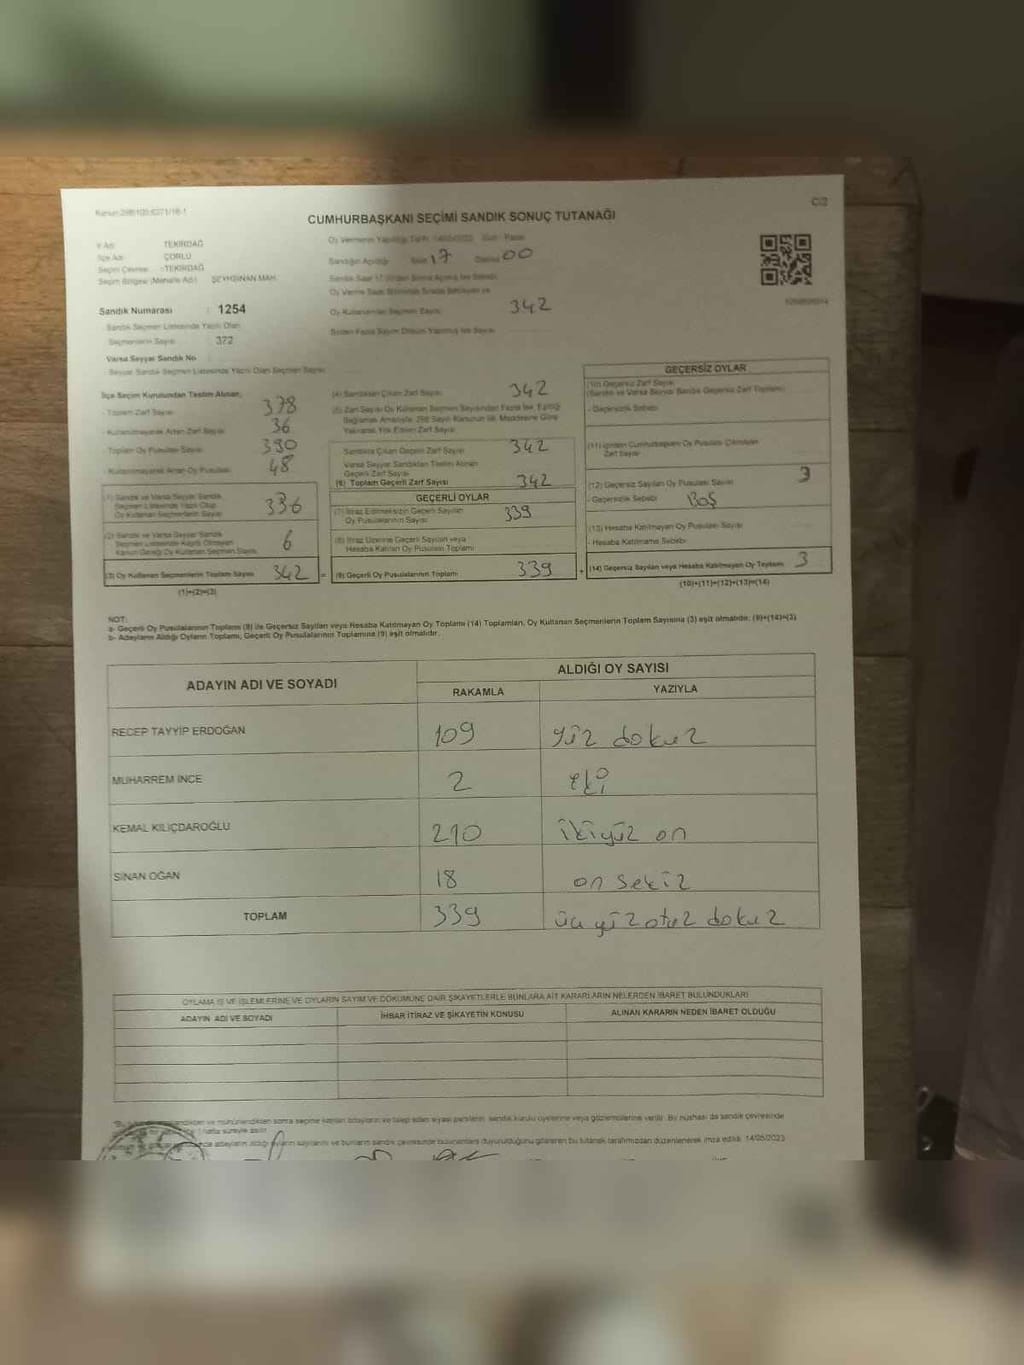 CUMHURBAŞKANI SEÇİMİ SANDIK SONUÇ TUTANAĞI
C/2
İl Adı TEKİRDAĞ
İlçe Adı ÇORLU
Seçim Çevresi : TEKİRDAĞ
Seçim Bölgesi (Mahalle Adı) ŞEYHSİNAN MAH.
Sandık Numarası : 1254
Sandık Seçmen Listesinde Yazılı Olan
Seçmenlerin Sayısı 372
Varsa Seyyar Sandık No
Seyyar Sandık Seçmen Listesinde Yazılı Olan Seçmen Sayısı
Sandığın Açıldığı Saat 17 Dakika 00
Oy Kullanan Seçmen Sayısı 342
İlçe Seçim Kurulundan Teslim Alınan;
- Toplam Zarf Sayısı 378
- Kullanılmayarak Artan Zarf Sayısı 36
- Toplam Oy Pusulası Sayısı 390
- Kullanılmayarak Artan Oy Pusulası 48
(1) Sandık ve Varsa Seyyar Sandık
Seçmen Listesinde Yazılı Olup
Oy Kullanan Seçmenlerin Sayısı 336
(2) Sandık ve Varsa Seyyar Sandık
Seçmen Listesinde Kayıtlı Olmayan
Kanun Gereği Oy Kullanan Seçmen Sayısı 6
(3) Oy Kullanan Seçmenlerin Toplam Sayısı 342 =
(1)+(2)=(3)
(4) Sandıktan Çıkan Zarf Sayısı 342
(5) Zarf Sayısı Oy Kullanan Seçmen Sayısından Fazla İse, Eşitliği
Sağlamak Amacıyla, 298 Sayılı Kanunun 98. Maddesine Göre
Yakılarak Yok Edilen Zarf Sayısı
Sandıkta Çıkan Geçerli Zarf Sayısı 342
Varsa Seyyar Sandıktan Teslim Alınan
Geçerli Zarf Sayısı
(6) Toplam Geçerli Zarf Sayısı 342
GEÇERLİ OYLAR
(7) İtiraz Edilmeksizin Geçerli Sayılan
Oy Pusulalarının Sayısı 339
(8) İtiraz Üzerine Geçerli Sayılan veya
Hesaba Katılan Oy Pusulası Toplamı
(9) Geçerli Oy Pusulalarının Toplamı 339 +
GEÇERSİZ OYLAR
(10) Geçersiz Zarf Sayısı
(Sandık ve Varsa Seyyar Sandık Geçersiz Zarf Toplamı)
- Geçersizlik Sebebi
(11) İçinden Cumhurbaşkanı Oy Pusulası Çıkmayan
Zarf Sayısı
(12) Geçersiz Sayılan Oy Pusulası Sayısı 3
- Geçersizlik Sebebi BOŞ
(13) Hesaba Katılmayan Oy Pusulası Sayısı
- Hesaba Katılmama Sebebi
(14) Geçersiz Sayılan veya Hesaba Katılmayan Oy Toplamı 3
(10)+(11)+(12)+(13)=(14)
NOT:
a- Geçerli Oy Pusulalarının Toplamı (9) ile Geçersiz Sayılan veya Hesaba Katılmayan Oy Toplamı (14) Toplamları, Oy Kullanan Seçmenlerin Toplam Sayısına (3) eşit olmalıdır. (9)+(14)=(3)
b- Adayların Aldığı Oyların Toplamı, Geçerli Oy Pusulalarının Toplamına (9) eşit olmalıdır.
ADAYIN ADI VE SOYADI
ALDIĞI OY SAYISI
RAKAMLA YAZIYLA
RECEP TAYYİP ERDOĞAN 109 yüz dokuz
MUHARREM İNCE 2 iki
KEMAL KILIÇDAROĞLU 210 ikiyüz on
SİNAN OĞAN 18 on sekiz
TOPLAM 339 üçyüzotuz dokuz
OYLAMA İŞ VE İŞLEMLERİNE VE OYLARIN SAYIM VE DÖKÜMÜNE DAİR ŞİKAYETLERLE BUNLARA AİT KARARLARIN NELERDEN İBARET BULUNDUKLARI
ADAYIN ADI VE SOYADI İHBAR İTİRAZ VE ŞİKAYETİN KONUSU ALINAN KARARIN NEDEN İBARET OLDUĞU